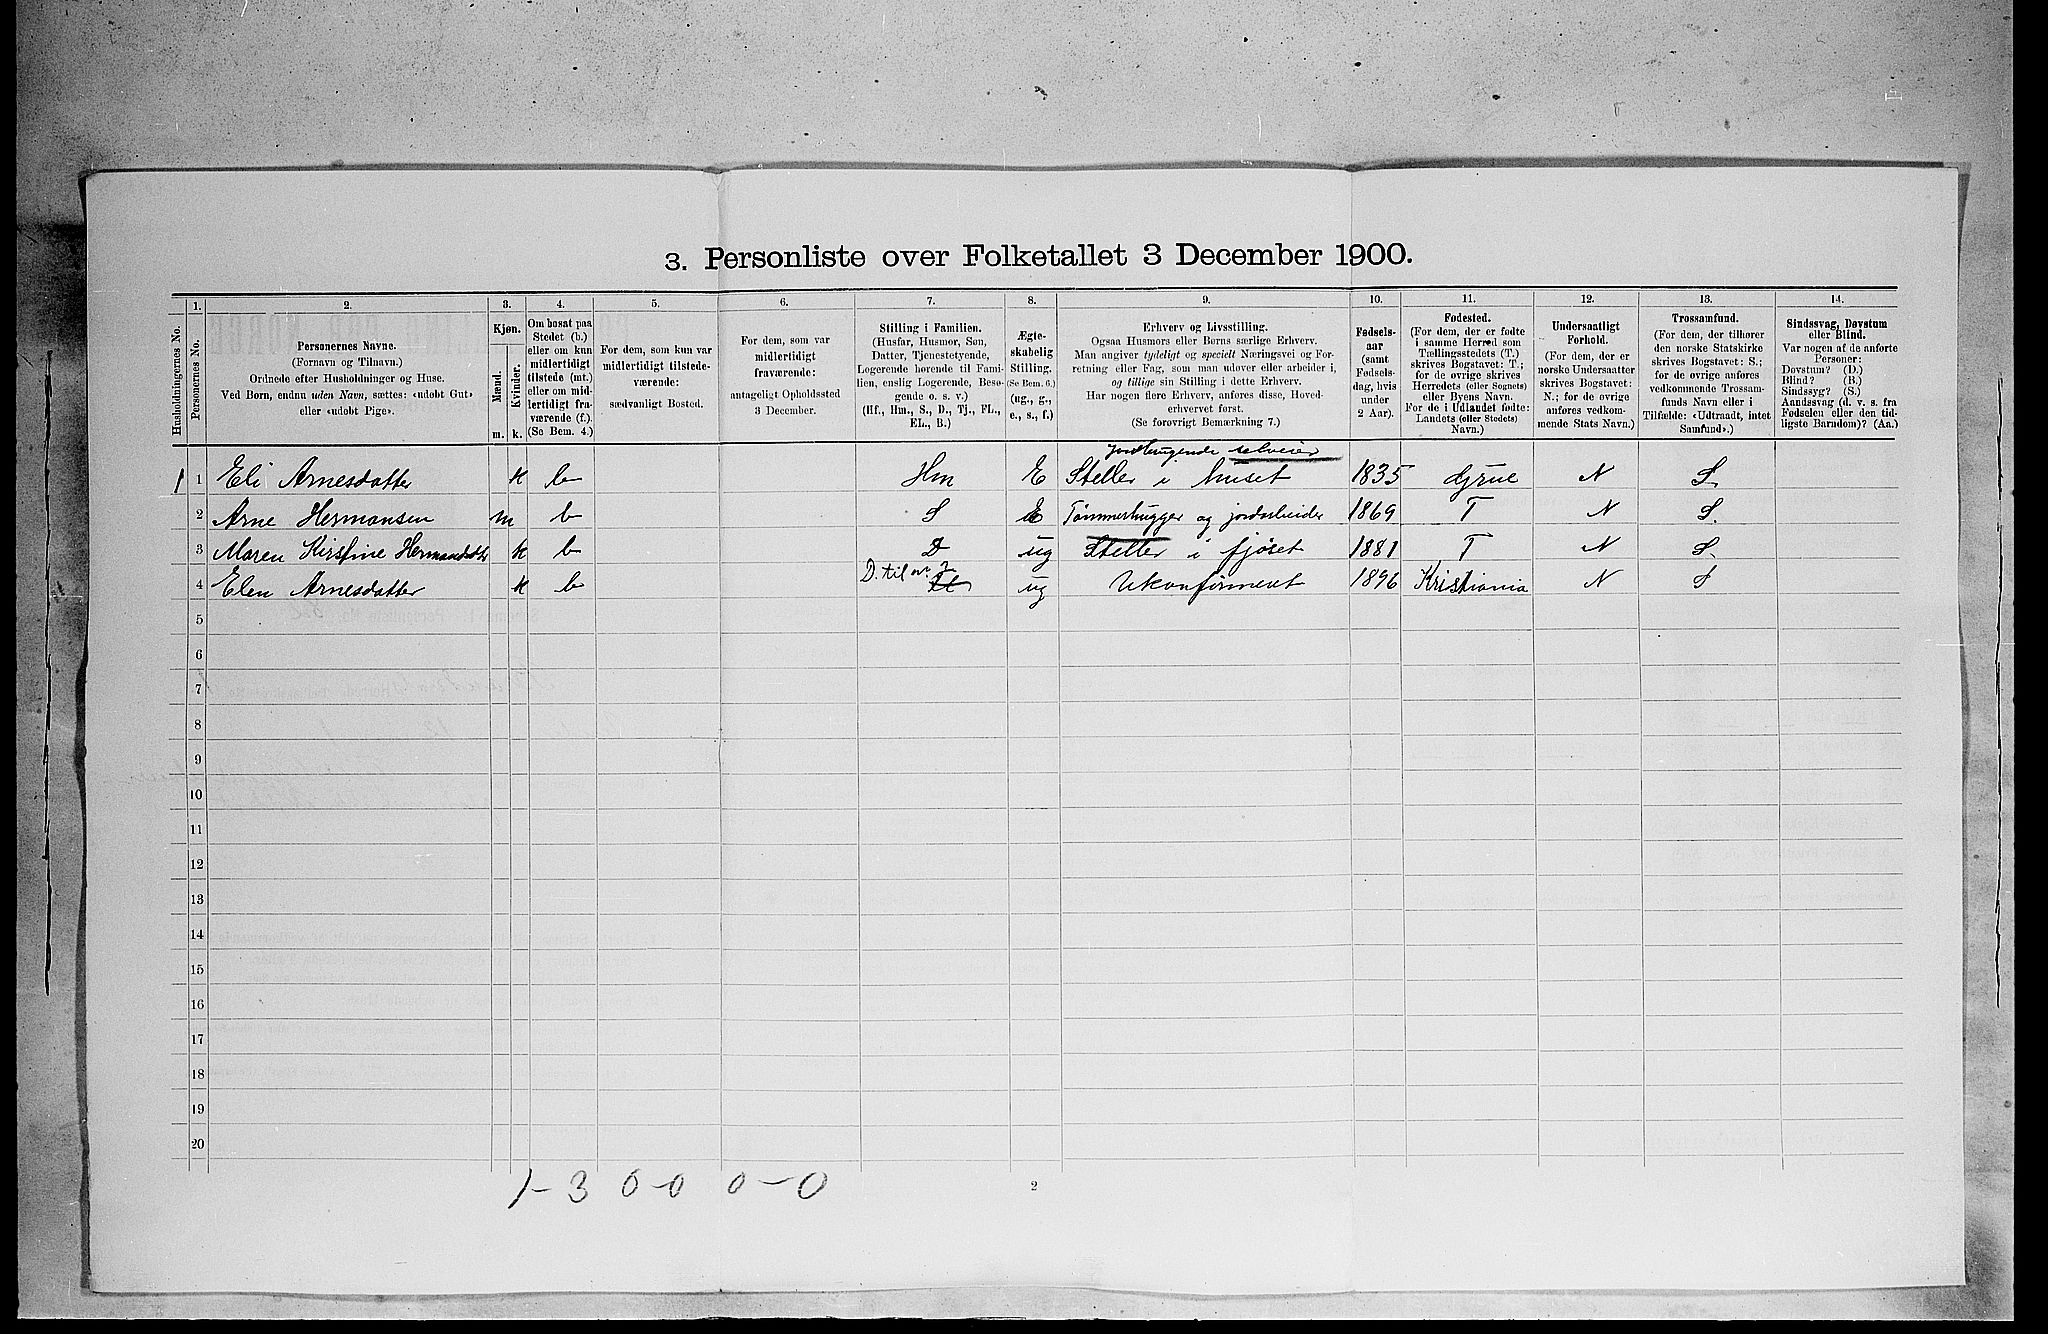 3. Personliste over Folketallet 3 December 1900.
1. 2. 3. 4. 5. 6. 7. 8. 9. 10. 11. 12. 13. 14.
Husholdningernes No.
Personernes No.
Personernes Navne.
(Fornavn og Tilnavn.)
Ordnede efter Husholdninger og Huse.
Ved Børn, endnu uden Navn, sættes: «udøbt Gut»
eller «udøbt Pige».
Kjøn.
Mænd.
Kvinder.
m. k.
Om bosat paa
Stedet (b.)
eller om kun
midlertidigt
tilstede (mt.)
eller om mid-
lertidigt fra-
værende (f.)
(Se Bem. 4.)
For dem, som kun var
midlertidigt tilstede-
værende:
sædvanligt Bosted.
For dem, som var
midlertidigt
fraværende:
antageligt Opholdssted
3 December.
Stilling i Familien.
(Husfar, Husmor, Søn,
Datter, Tjenestetyende,
Logerende hørende til Fami-
lien, enslig Logerende, Besø-
gende o. s. v.)
(Hf., Hm., S., D., Tj., FL.,
EL., B.)
Ægte-
skabelig
Stilling.
(Se Bem. 6.)
(ug., g.,
e., s., f.)
Erhverv og Livsstilling.
Ogsaa Husmors eller Børns særlige Erhverv.
Man angiver tydeligt og specielt Næringsvei og For-
retning eller Fag, som man udover eller arbeider i,
og tillige sin Stilling i dette Erhverv.
Har nogen flere Erhverv, anføres disse, Hoved-
erhvervet først.
(Se forøvrigt Bemærkning 7.)
Fødsels-
aar
(samt
Fødsels-
dag, hvis
under
2 Aar).
Fødested.
(For dem, der er fødte
i samme Herred som
Tællingsstedets (T.)
skrives Bogstavet: T.;
for de øvrige skrives
Herredets (eller Sognets)
eller Byens Navn.
For de i Udlandet fødte:
Landets (eller Stedets)
Navn.)
Undersaatligt
Forhold.
(For dem, der er
norske Undersaatter
skrives Bogstavet:
N.; for de øvrige
anføres vedkom-
mende Stats Navn.)
Trossamfund.
(For dem, der tilhører
den norske Statskirke
skrives Bogstavet: S.;
for de øvrige anføres
vedkommende Trossam-
funds Navn eller i
Tilfælde: «Udtraadt, intet
Samfund».)
Sindssvag, Døvstum
eller Blind.
Var nogen af de anførte
Personer:
Døvstum? (D.)
Blind? (B.)
Sindssyg? (S.)
Aandssvag (d. v. s. fra
Fødselen eller den tid-
ligste Barndom)? (Aa.)
jordbrugende selveier
1 1 Eli Arnesdatter k b Hm E Steller i huset 1835 Grue N S.
2 Arne Hermansen m b S E Tømmerhugger og jordarbeider 1869 T N S.
3 Maren Kirstine Hermansdatter k b D ug Steller i fjøset 1881 T N S.
D. til nr. 2
4 Elen Arnesdatter k b ug Ukonfirmeret 1896 Kristiania N S
5
6
7
8
9
10
11
12
13
14
15
16
17
18
19
20
1-3 0-0 0-0
2